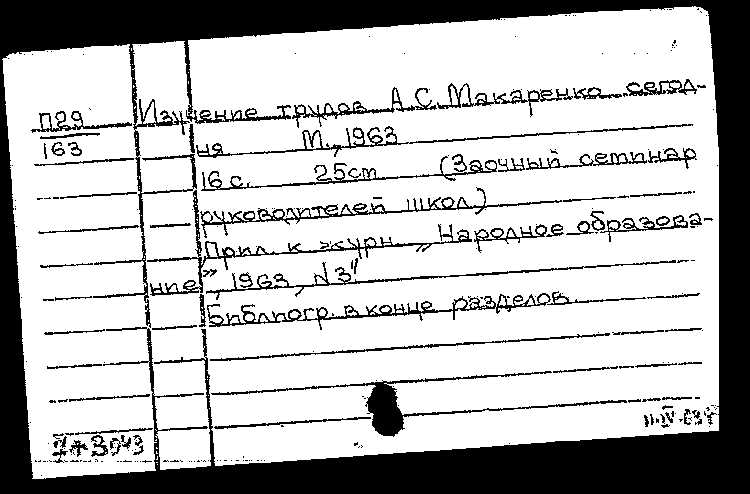 П29 Изучение трудов А.С. Макаренко сегод-
163 ня М., 1963
16 с. 25см (Заочный семинар
руководителей школ.)
Прил. к журн. „Народное образова-
ние", 1963, №3"
Библиогр. в конце разделов.